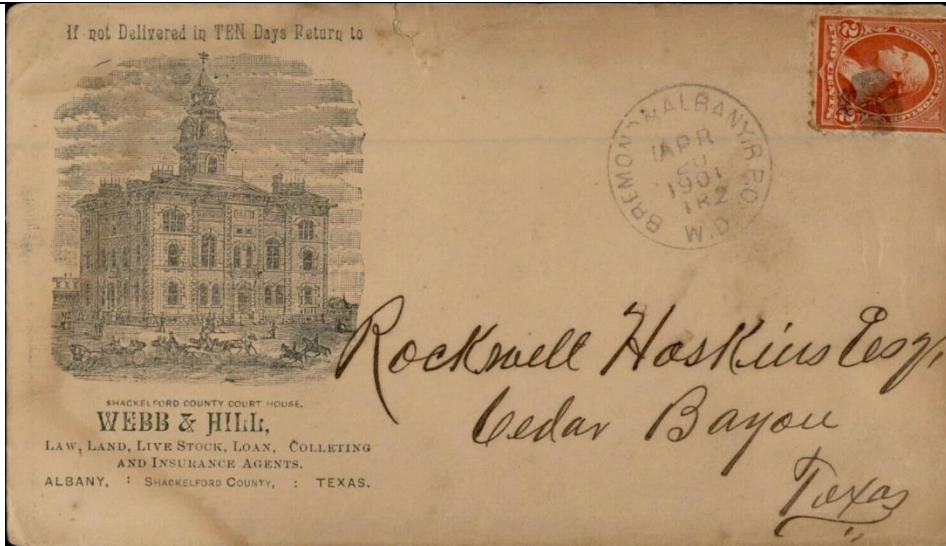 If not Delivered in TEN Days Return to
SHACKELFORD COUNTY COURT HOUSE.
WEBB & HILL,
LAW, LAND, LIVE STOCK, LOAN, COLLETING
AND INSURANCE AGENTS.
ALBANY, : SHACKELFORD COUNTY, : TEXAS.
BREMOND & ALBANY R.P.O.
APR
20
1901
TR2
W.D
UNITED STATES POSTAGE
2 2
Rockwell Hoskins Esqr
Cedar Bayou
Texas